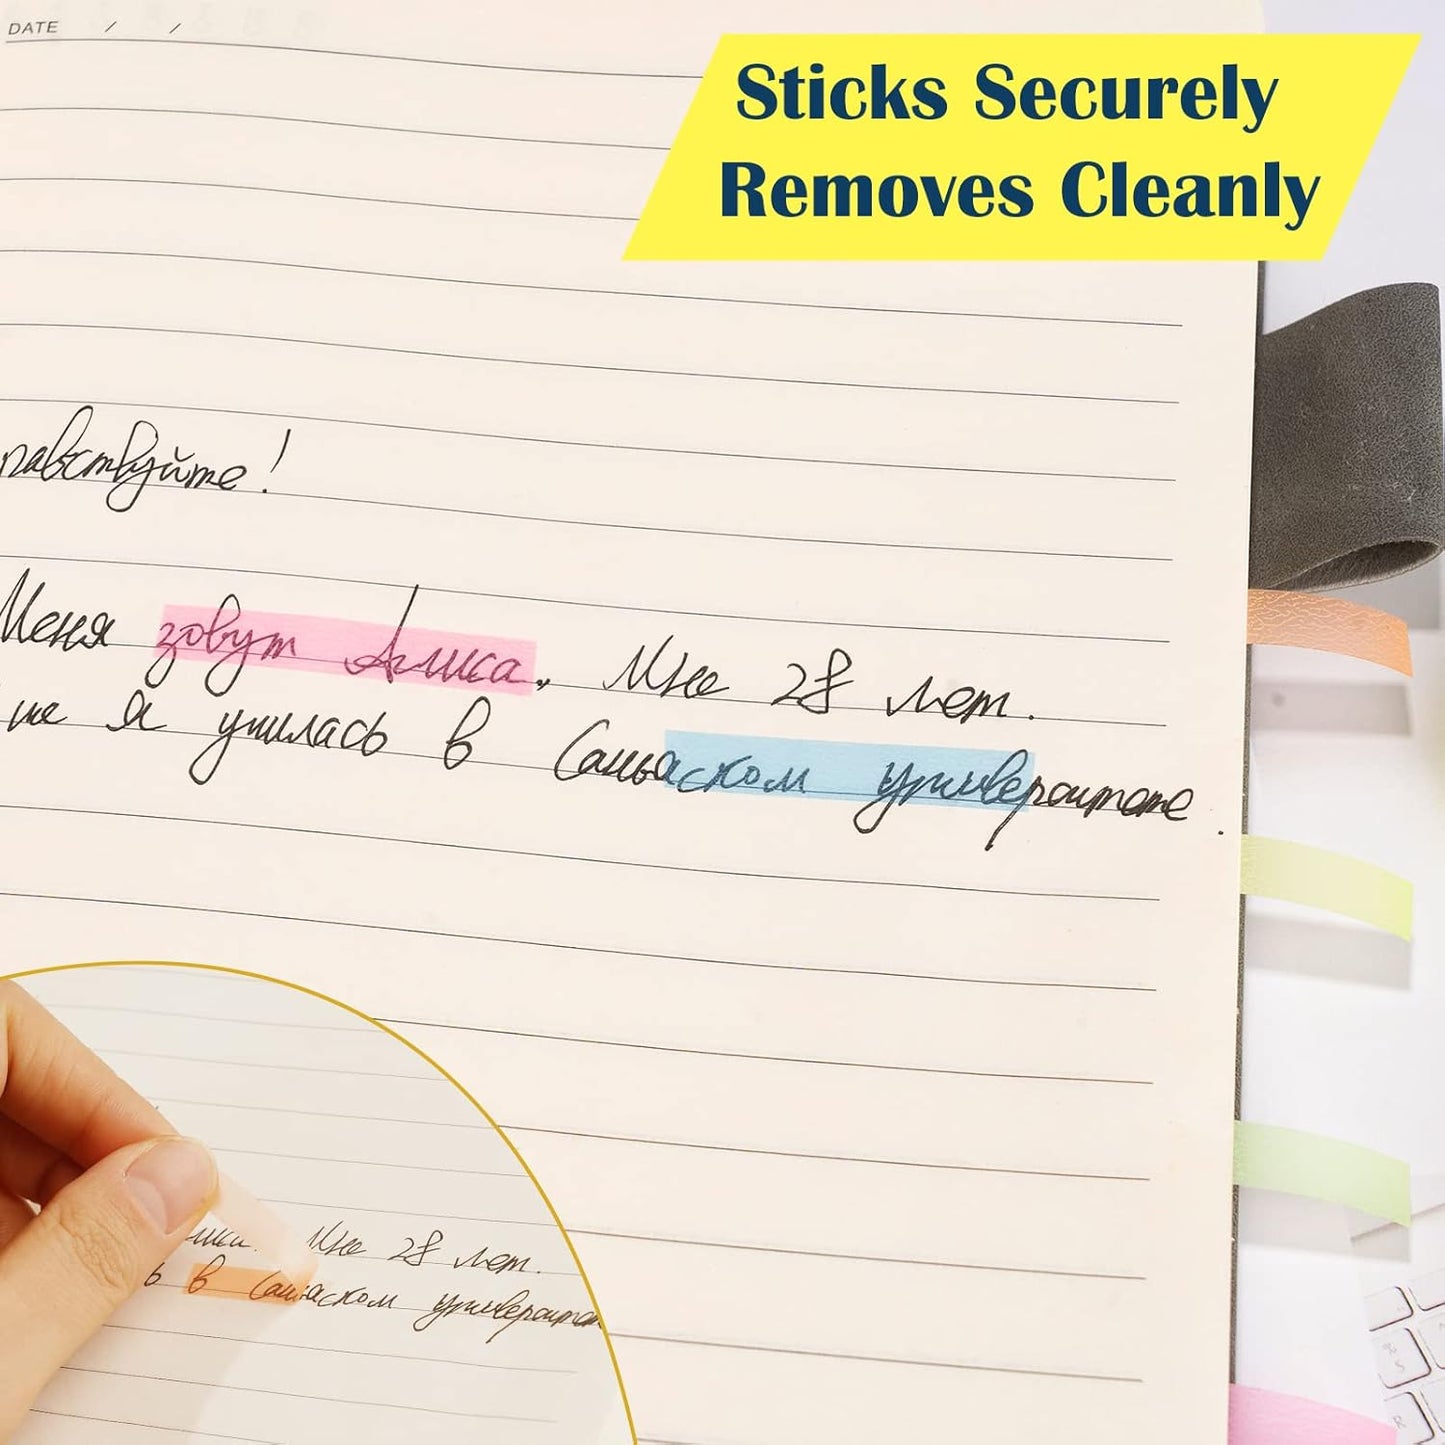 DATE / /
Sticks Securely
Removes Cleanly
равствуйте!
Меня зовут Алиса. Мне 28 лет.
же я училась в Саньяском университете.
Мне 28 лет.
ь в Саньяском университе